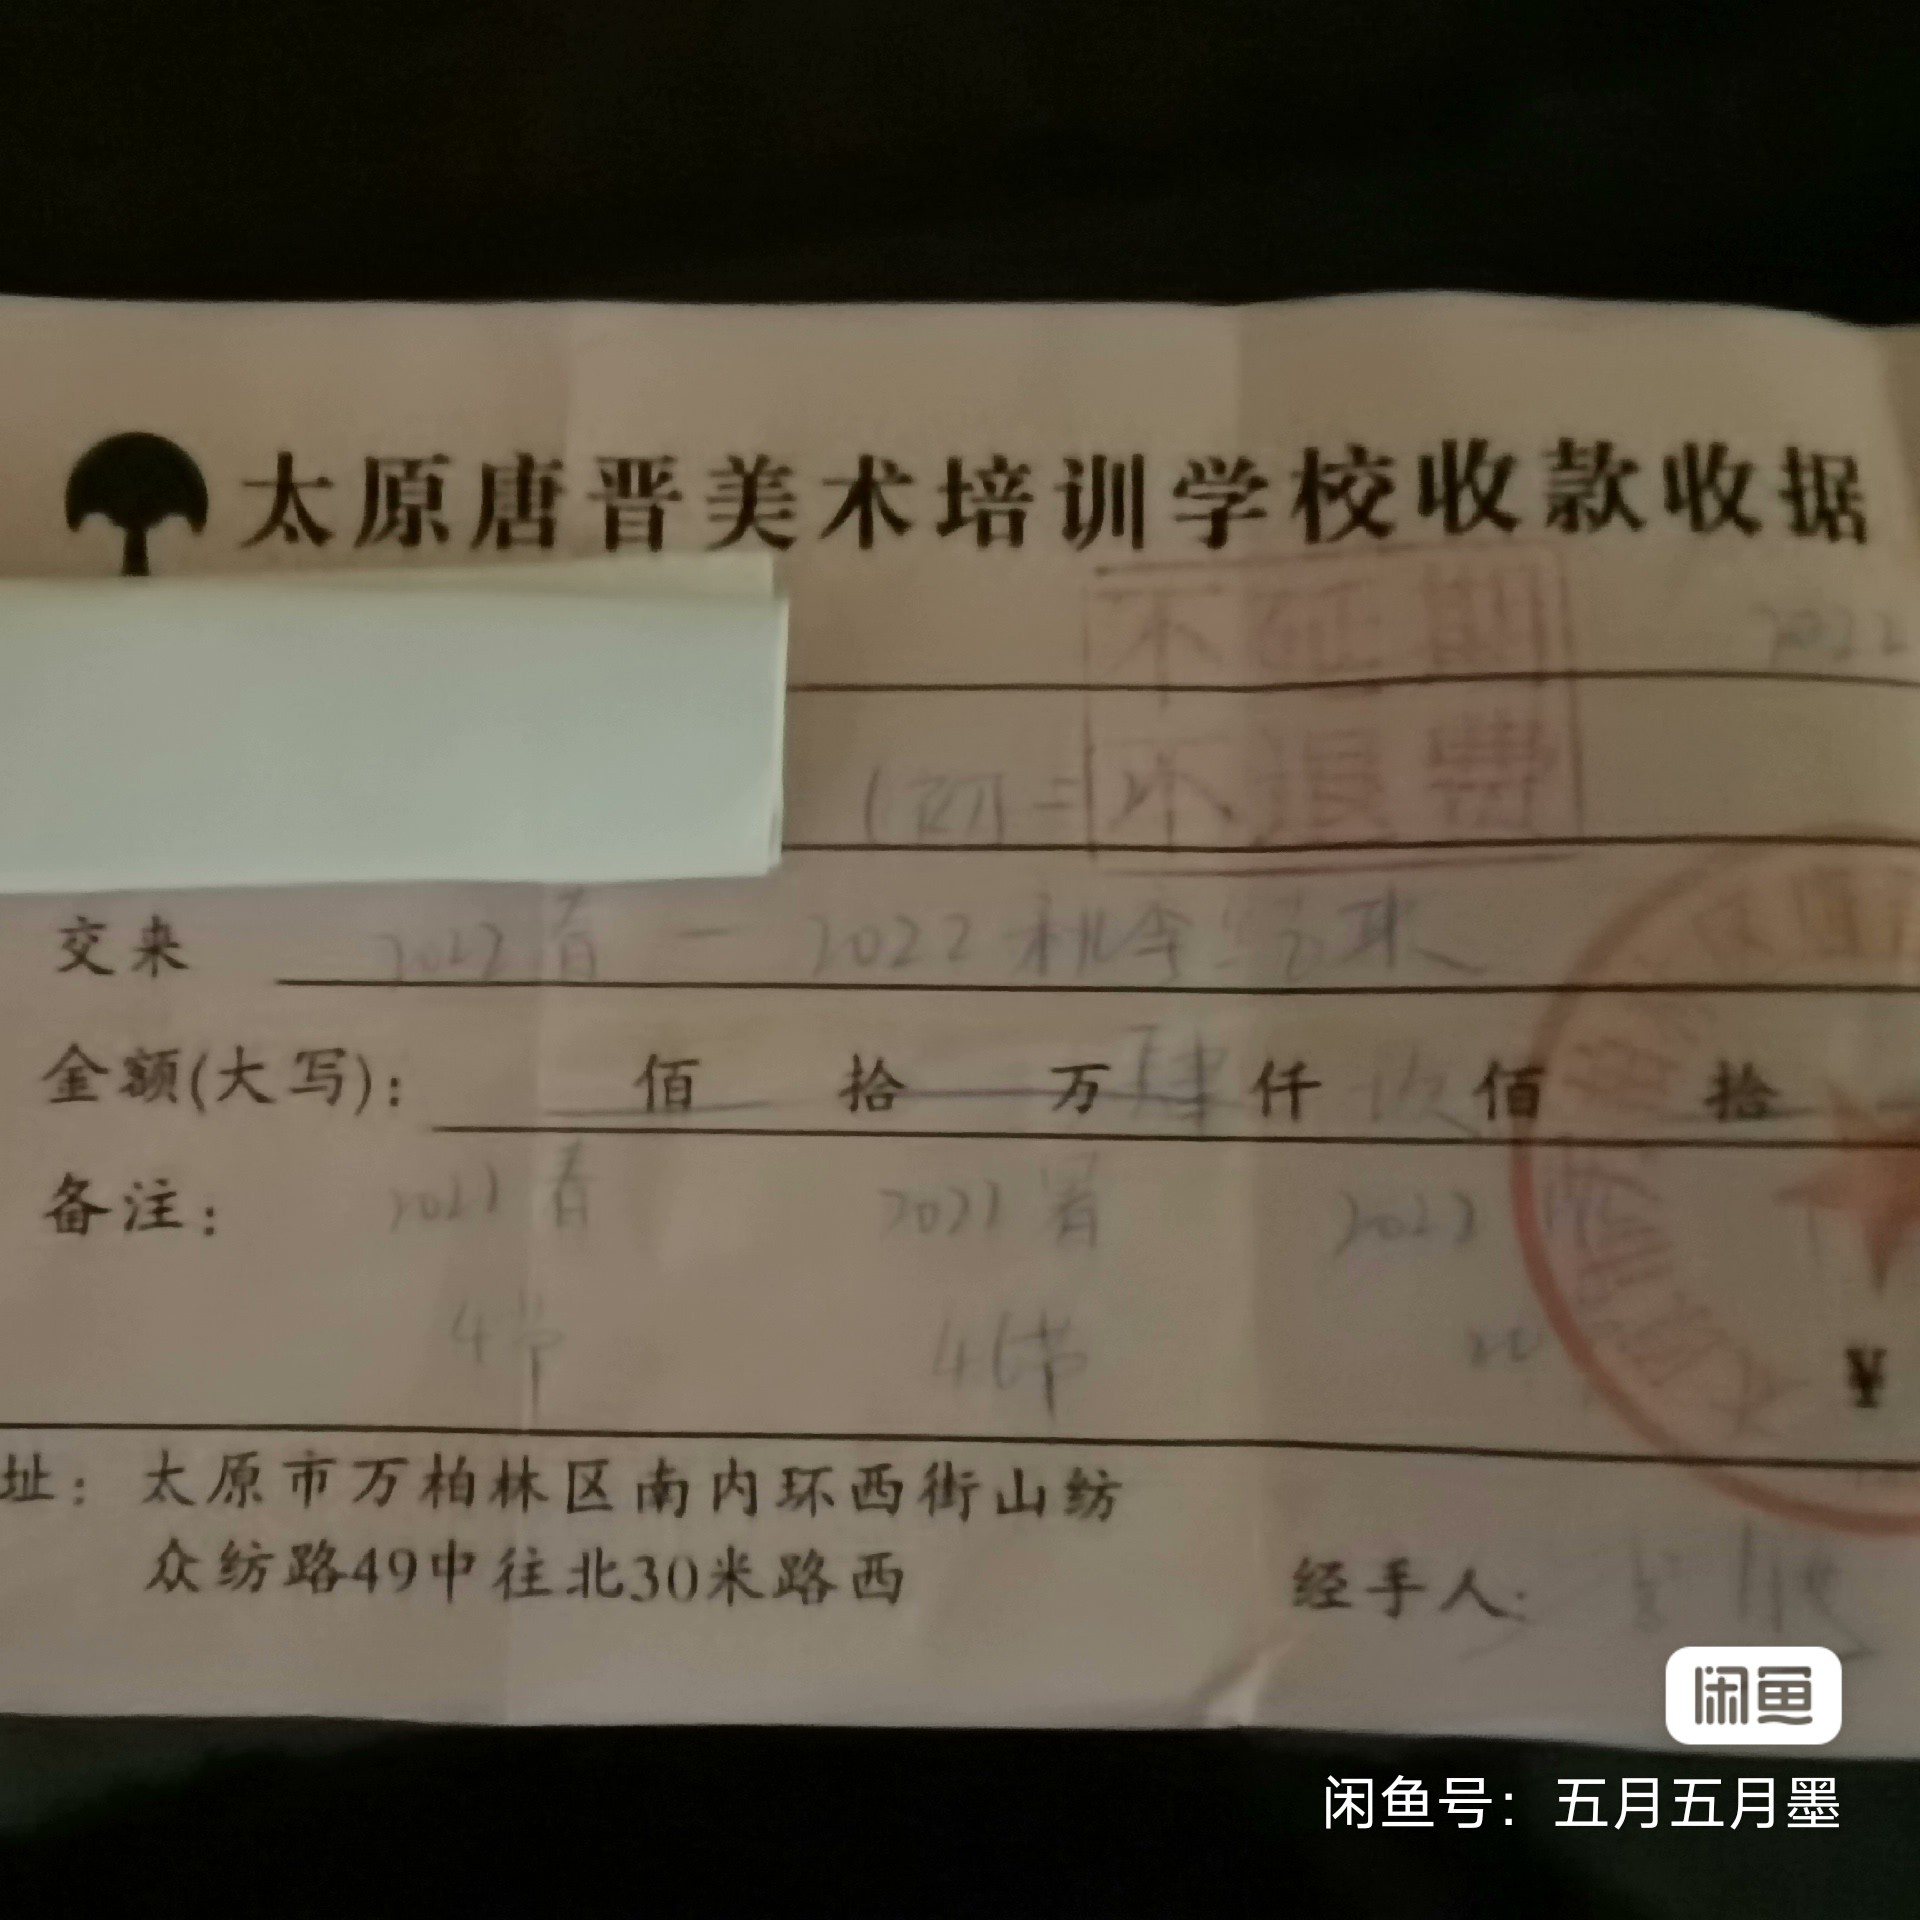 太原唐晋美术培训学校收款收据
不延期
2022
不退费
(初二
交来 2022春 — 2022秋季
金额(大写): 佰 拾 万 肆 仟 玖 佰 拾
备注: 2022春 2022暑 2022
4节 46节
¥
址: 太原市万柏林区南内环西街山纺
众纺路49中往北30米路西
经手人:
闲鱼
闲鱼号: 五月五月墨